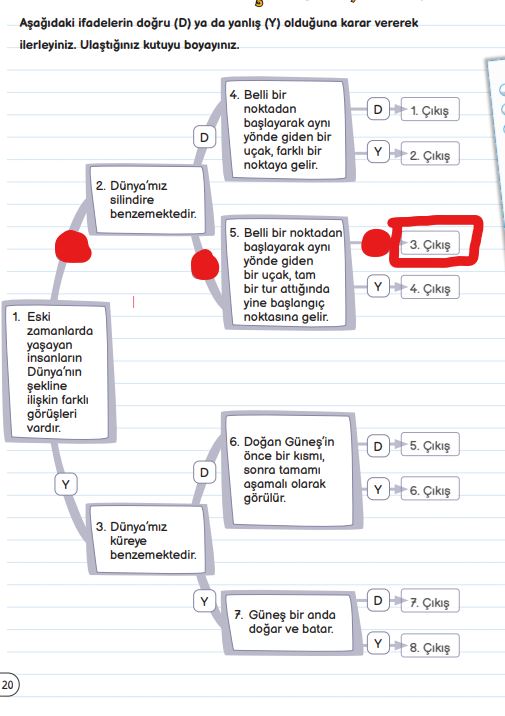 Aşağıdaki ifadelerin doğru (D) ya da yanlış (Y) olduğuna karar vererek
ilerleyiniz. Ulaştığınız kutuyu boyayınız.
4. Belli bir
noktadan
başlayarak aynı
yönde giden bir
uçak, farklı bir
noktaya gelir.
D
1. Çıkış
Y
2. Çıkış
D
2. Dünya'mız
silindire
benzemektedir.
5. Belli bir noktadan
başlayarak aynı
yönde giden
bir uçak, tam
bir tur attığında
yine başlangıç
noktasına gelir.
3. Çıkış
Y
4. Çıkış
1. Eski
zamanlarda
yaşayan
insanların
Dünya'nın
şekline
ilişkin farklı
görüşleri
vardır.
6. Doğan Güneş'in
önce bir kısmı,
sonra tamamı
aşamalı olarak
görülür.
D
5. Çıkış
Y
6. Çıkış
Y
D
3. Dünya'mız
küreye
benzemektedir.
Y
7. Güneş bir anda
doğar ve batar.
D
7. Çıkış
Y
8. Çıkış
20